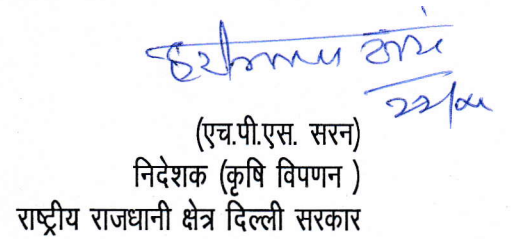 (एच.पी.एस. सरन)
निदेशक (कृषि विपणन )
राष्ट्रीय राजधानी क्षेत्र दिल्ली सरकार